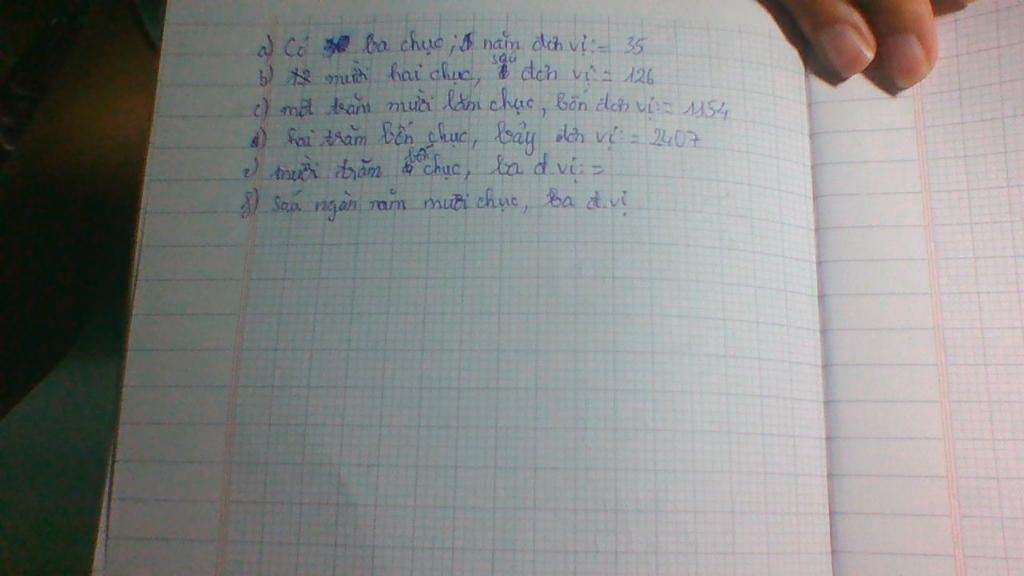 a) Có ba chục, năm đơn vị:= 35
b) mười hai chục, sáu đơn vị = 126
c) một trăm mười lăm chục, bốn đơn vị:= 1154
d) hai trăm bốn chục, bảy đơn vị:= 2407
e) mười trăm bốn chục, ba đ.vị:=
f) Sáu ngàn năm mười chục, ba đ.vị